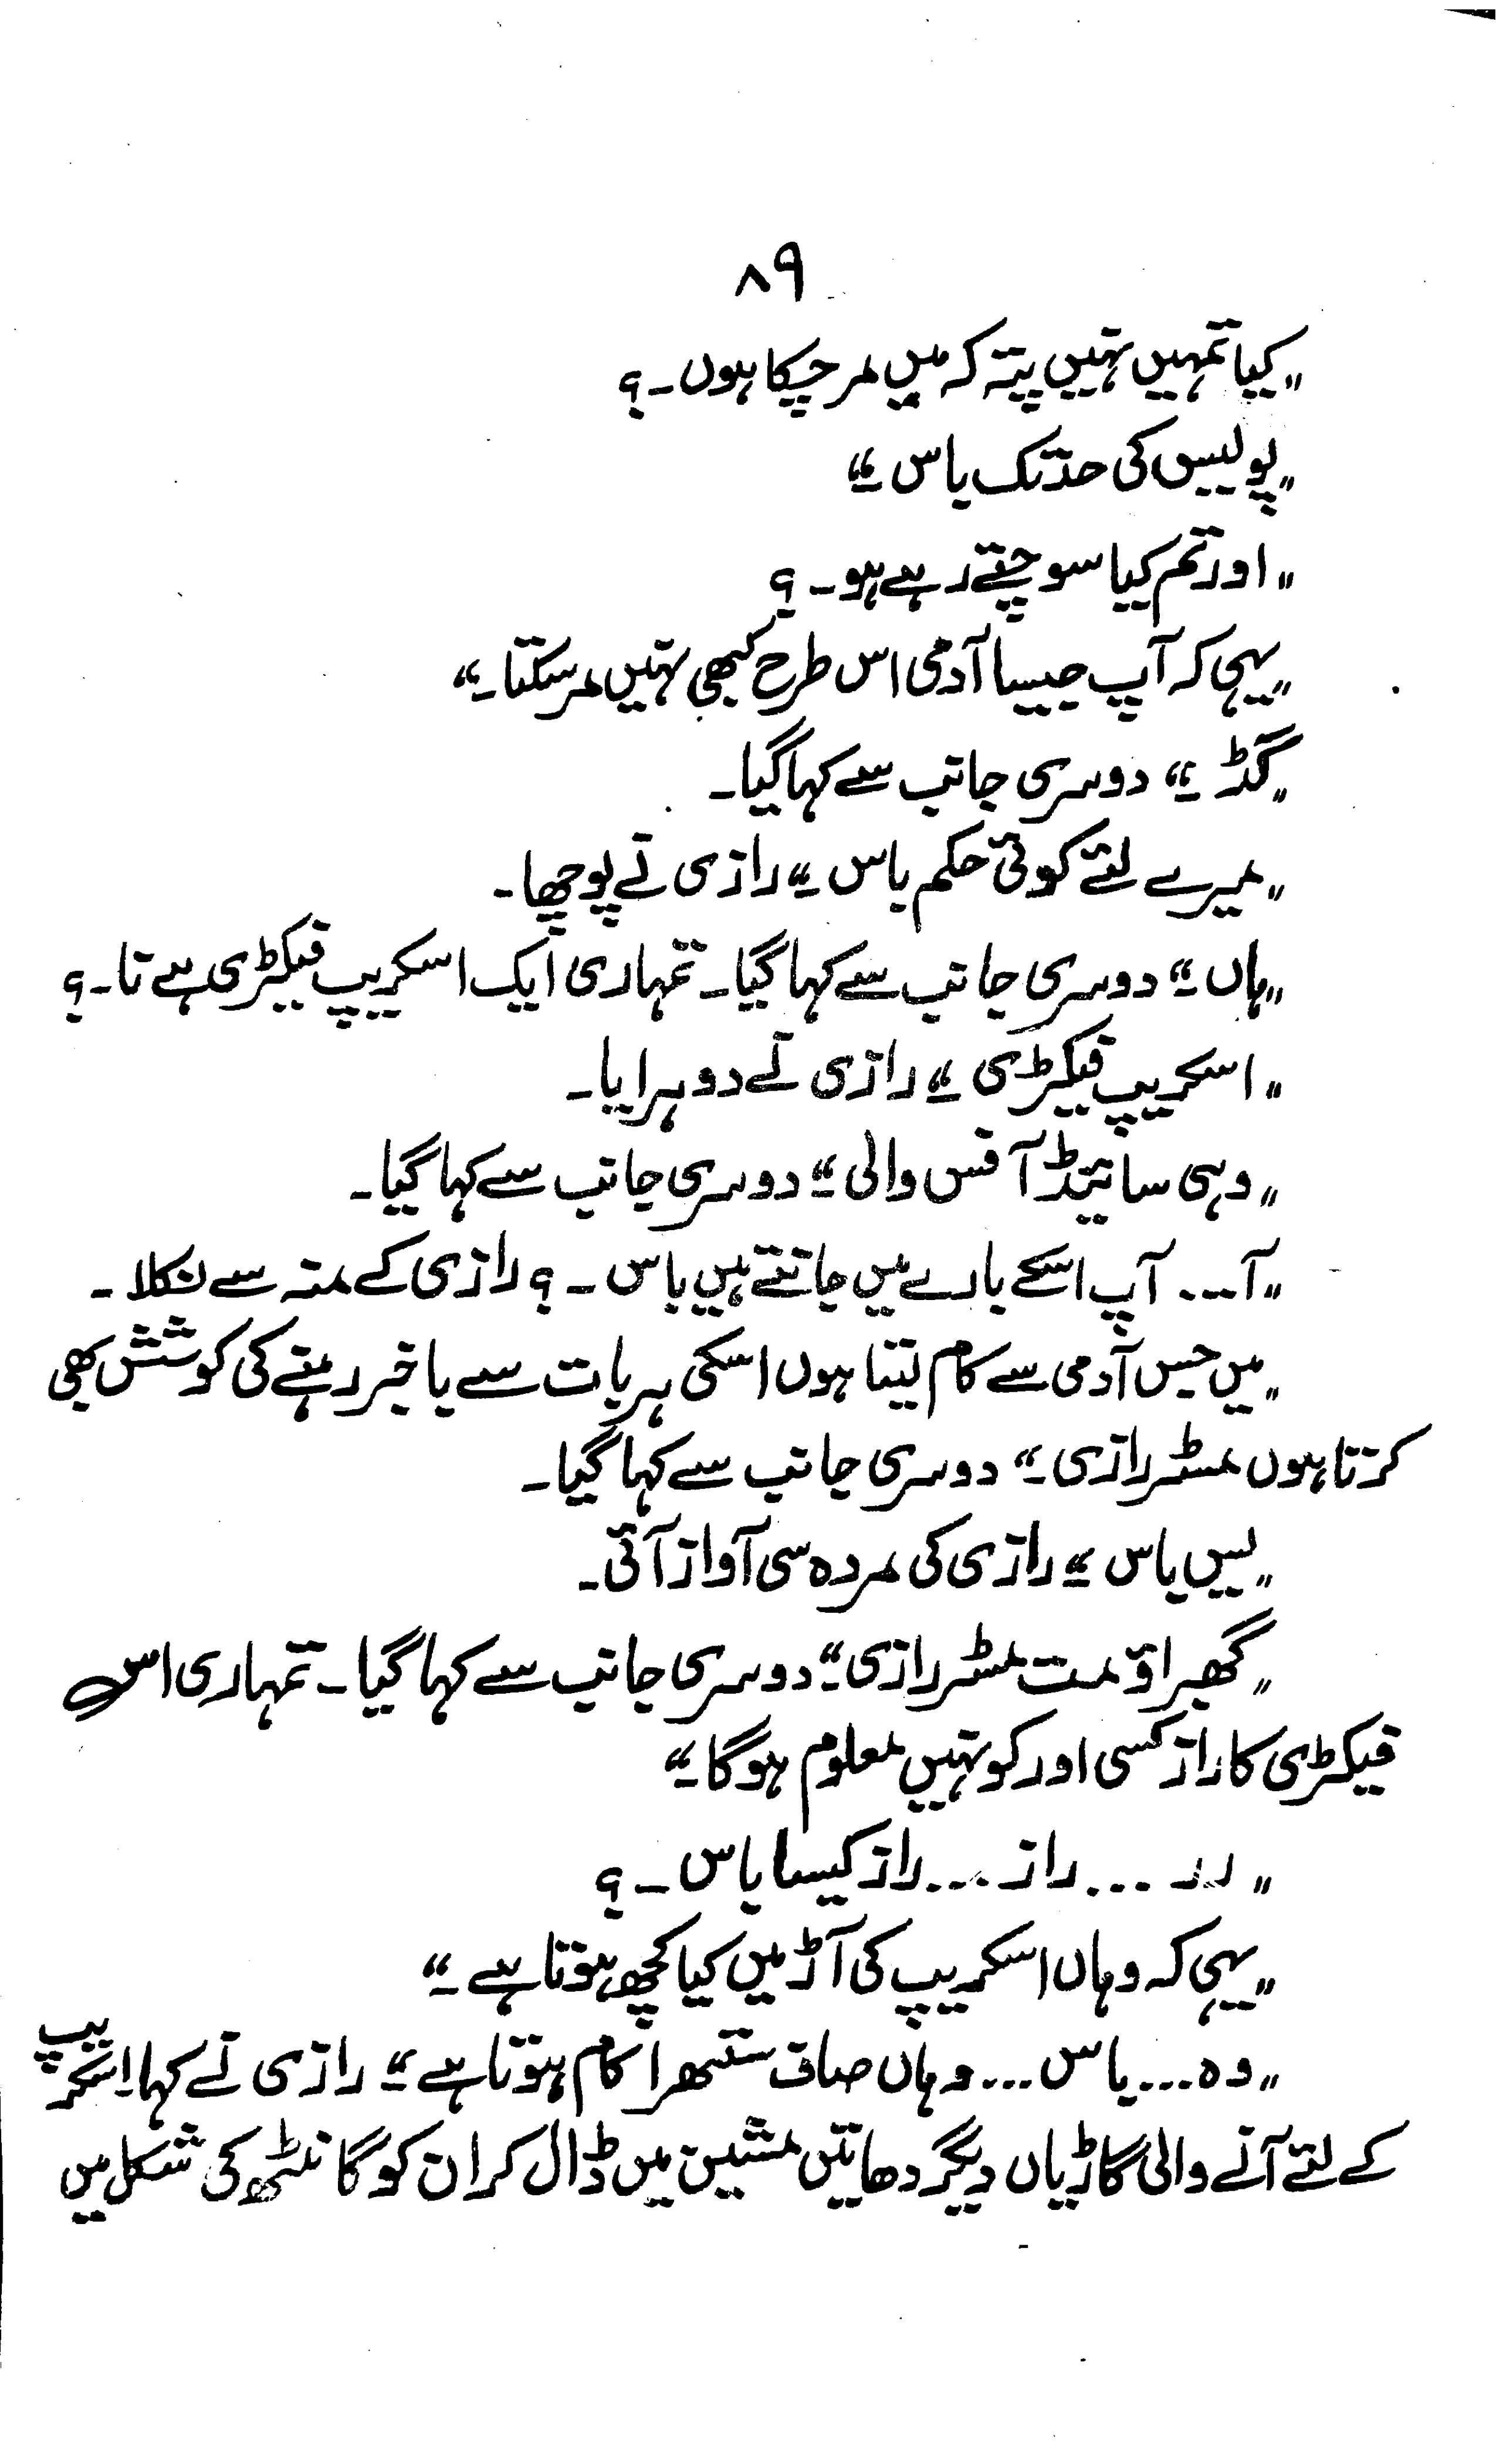 ۸۹
"کیا تمہیں نہیں پتہ کہ میں مر چکا ہوں۔؟
"پولیس کی حد تک باس۔"
"اور تم کیا سوچتے رہے ہو۔؟
"یہی کہ آپ جیسا آدمی اس طرح کبھی نہیں مر سکتا۔"
"گڈ۔" دوسری جانب سے کہا گیا۔
"میرے لئے کوئی حکم باس۔" رازی نے پوچھا۔
"ہاں۔" دوسری جانب سے کہا گیا۔ تمہاری ایک اسکریپ فیکٹری ہے نا۔؟
"اسکریپ فیکٹری۔" رازی نے دوہرایا۔
"وہی سائیڈ آفس والی۔" دوسری جانب سے کہا گیا۔
"آ... آپ اسکے بارے میں جانتے ہیں باس۔؟ رازی کے منہ سے نکلا۔
"میں جس آدمی سے کام لیتا ہوں اسکی ہر بات سے باخبر رہنے کی کوشش بھی
کرتا ہوں مسٹر رازی۔" دوسری جانب سے کہا گیا۔
"یس باس۔" رازی کی مردہ سی آواز آئی۔
"گھبراؤ مت مسٹر رازی۔" دوسری جانب سے کہا گیا۔ تمہاری اس
فیکٹری کا راز کسی اور کو نہیں معلوم ہوگا۔"
"رر ... راز ... راز کیسا باس۔؟
"یہی کہ وہاں اسکریپ کی آڑ میں کیا کچھ ہوتا ہے۔"
"وہ ... باس ... وہاں صاف ستھرا کام ہوتا ہے۔" رازی نے کہا اسکریپ
کے لئے آنے والی گاڑیاں دیگر دھاتیں مشین میں ڈال کر ان کو گانٹھ کی شکل میں